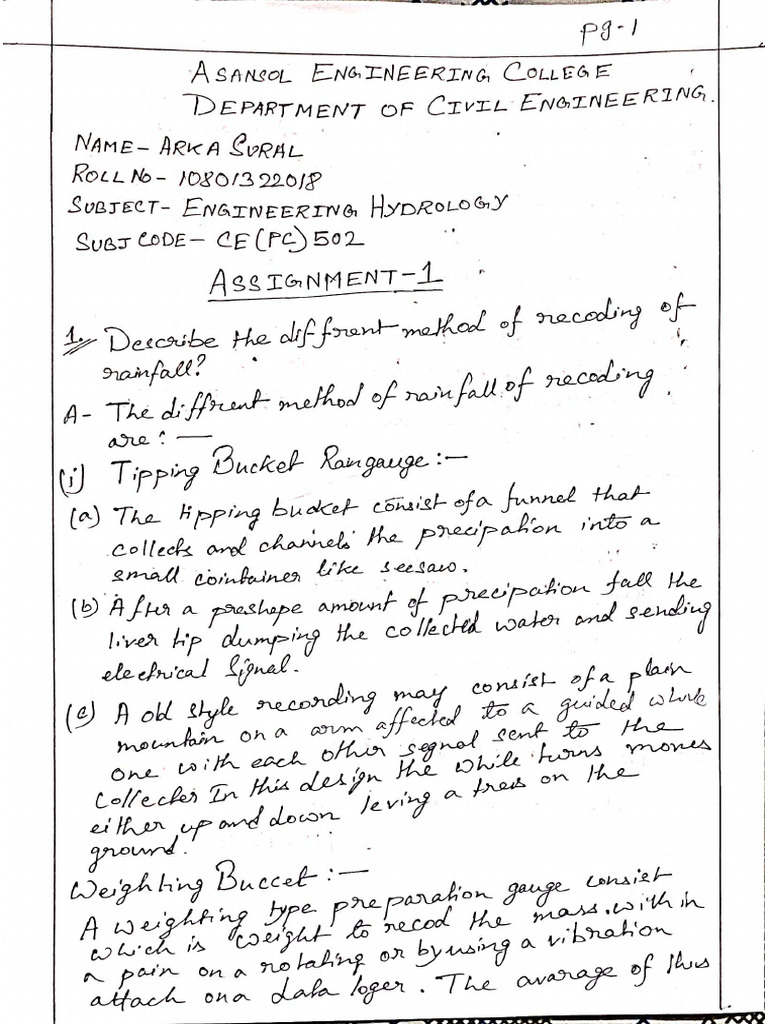 pg-1
ASANSOL ENGINEERING COLLEGE
DEPARTMENT OF CIVIL ENGINEERING.
NAME- ARKA SURAL
ROLL NO- 10801322018
SUBJECT- ENGINEERING HYDROLOGY
SUBJ CODE- CE(PC)502
ASSIGNMENT-1
1. Describe the diffrent method of recoding of
rainfall?
A- The diffrent method of rainfall of recoding
are:—
(i) Tipping Bucket Raingauge:—
(a) The tipping bucket consist of a funnel that
collects and channels the precipation into a
small cointainer like seesaw.
(b) After a preshape amount of precipation fall the
liver tip dumping the collected water and sending
electrical signal.
(c) A old style recording may consist of a plain
mountain on a arm affected to a guided while
one with each other segnal sent to the
collecter In this design the while turns moves
either up and down leving a tres on the
ground.
Weighting Buccet:—
A weighting type preparation gauge consist
which is weight to recod the mass. with in
a pain on a rotating or by using a vibration
attach on a data loger. The avarage of this